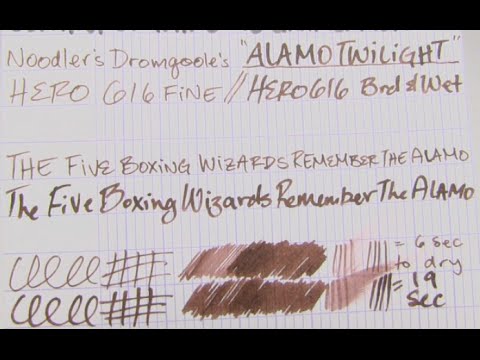 Noodler's Dromgoole's "ALAMO TWILIGHT"
HERO 616 FINE // HERO 616 Brd & Wet
THE FIVE BOXING WIZARDS REMEMBER THE ALAMO
The Five Boxing Wizards Remember The ALAMO
= 6 sec
to dry
= 19
sec